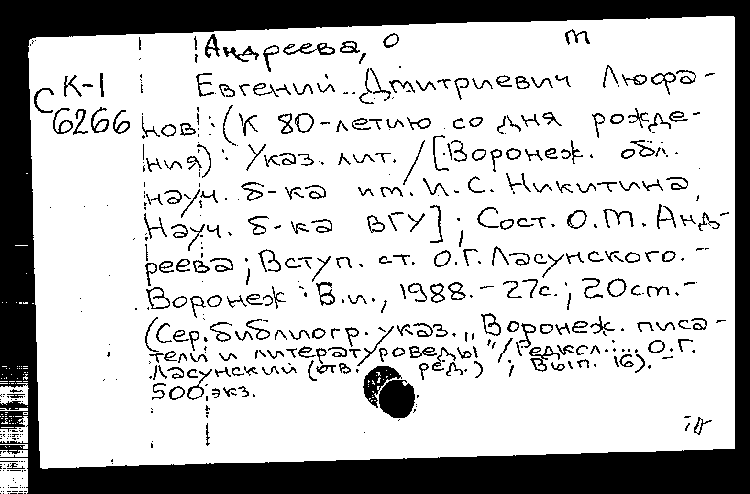 Андреева, О М
К-1
С 6266
Евгений Дмитриевич Люфа-
нов: (К 80-летию со дня рожде-
ния): Указ. лит. / [Воронеж. обл.
науч. б-ка им. И. С. Никитина,
Науч. б-ка ВГУ]; Сост. О.М. Анд-
реева; Вступ. ст. О.Г. Ласунского. -
Воронеж: Б.и., 1988. - 27с.; 20см. -
(Сер. библиогр. указ. „Воронеж. писа-
тели и литературоведы" / Редкол.:... О.Г.
Ласунский (отв. ред.); Вып. 16). -
500 экз.